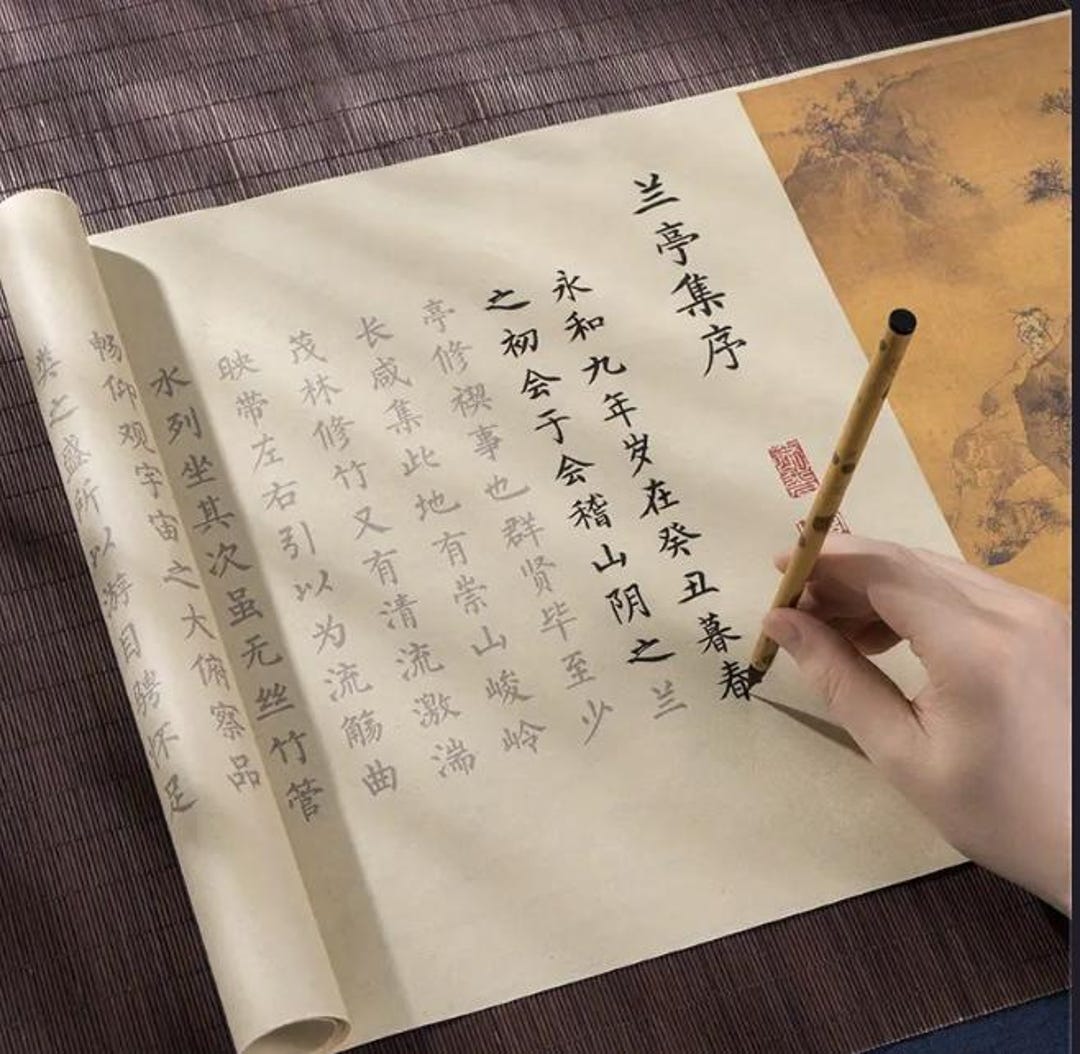 兰亭集序
永和九年岁在癸丑暮春
之初会于会稽山阴之兰
亭修禊事也群贤毕至少
长咸集此地有崇山峻岭
茂林修竹又有清流激湍
映带左右引以为流觞曲
水列坐其次虽无丝竹管
畅仰观宇宙之大俯察品
类之盛所以游目骋怀足